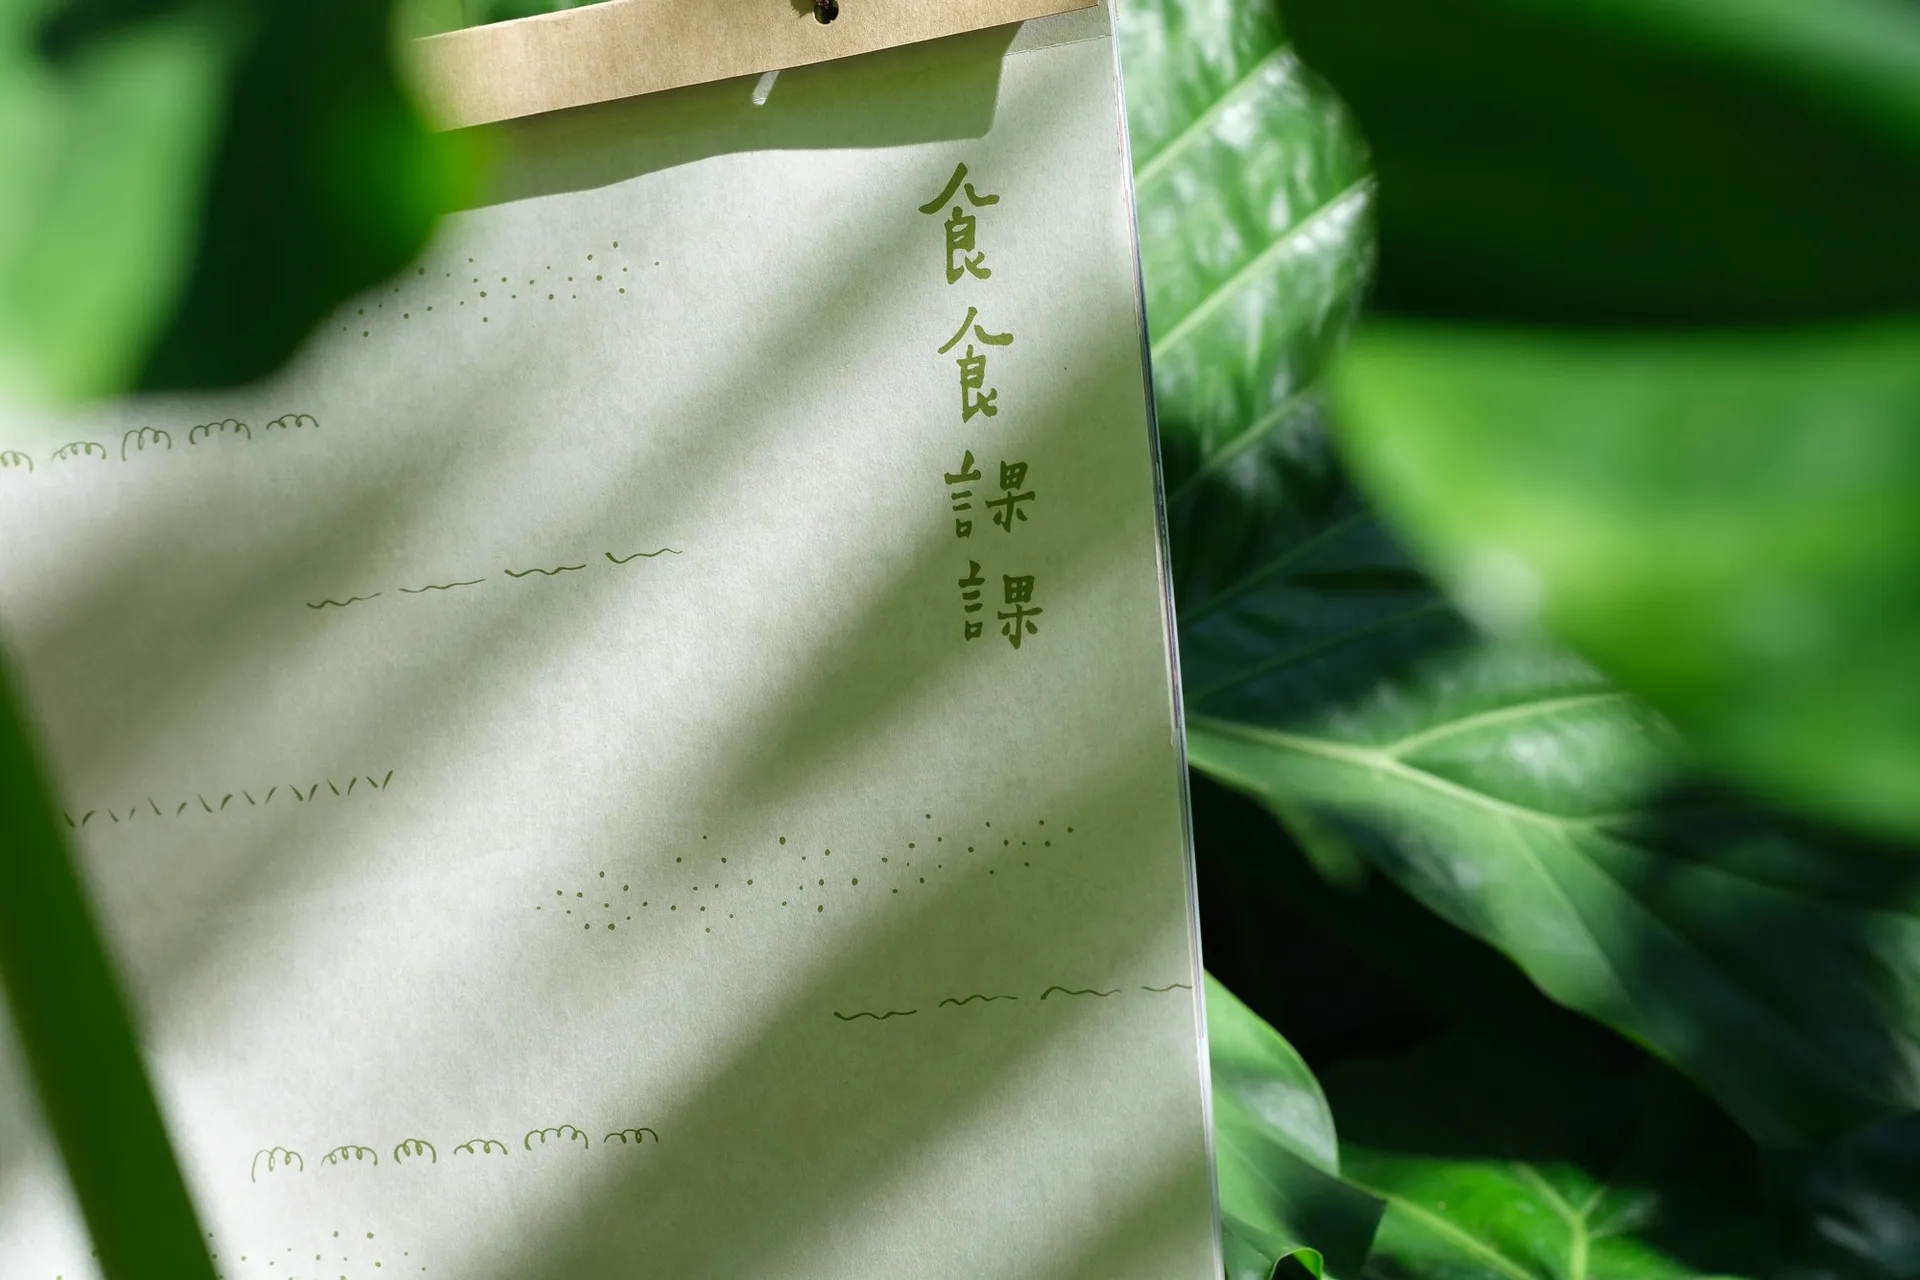 食食課課